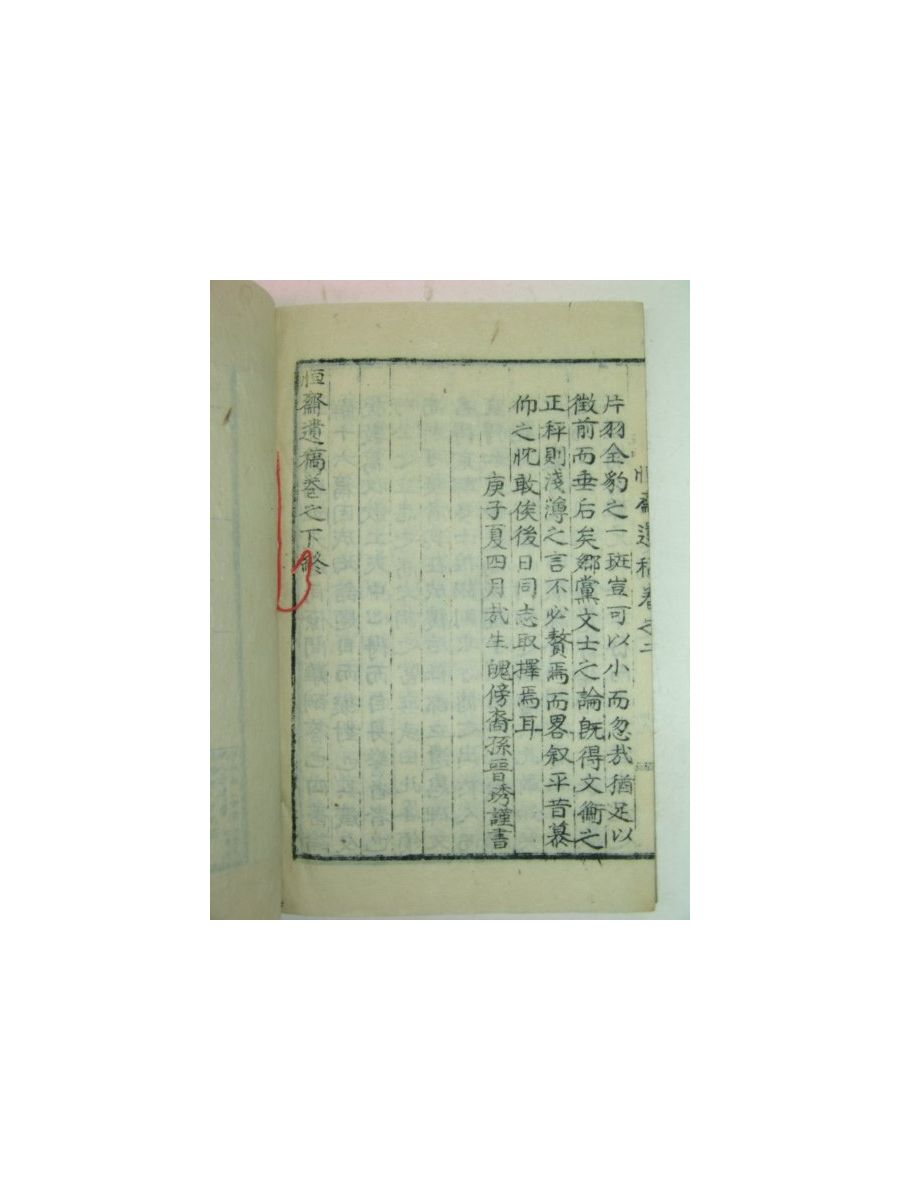 恒齋遺稿卷之二
片羽全豹之一斑豈可以小而忽哉猶足以
徵前而垂后矣鄉黨文士之論旣得文衡之
正秤則淺薄之言不必贅焉而畧叙平昔慕
仰之忱敢俟後日同志取擇焉耳
庚子夏四月哉生魄傍裔孫晉琇謹書
恒齋遺稿卷之下終